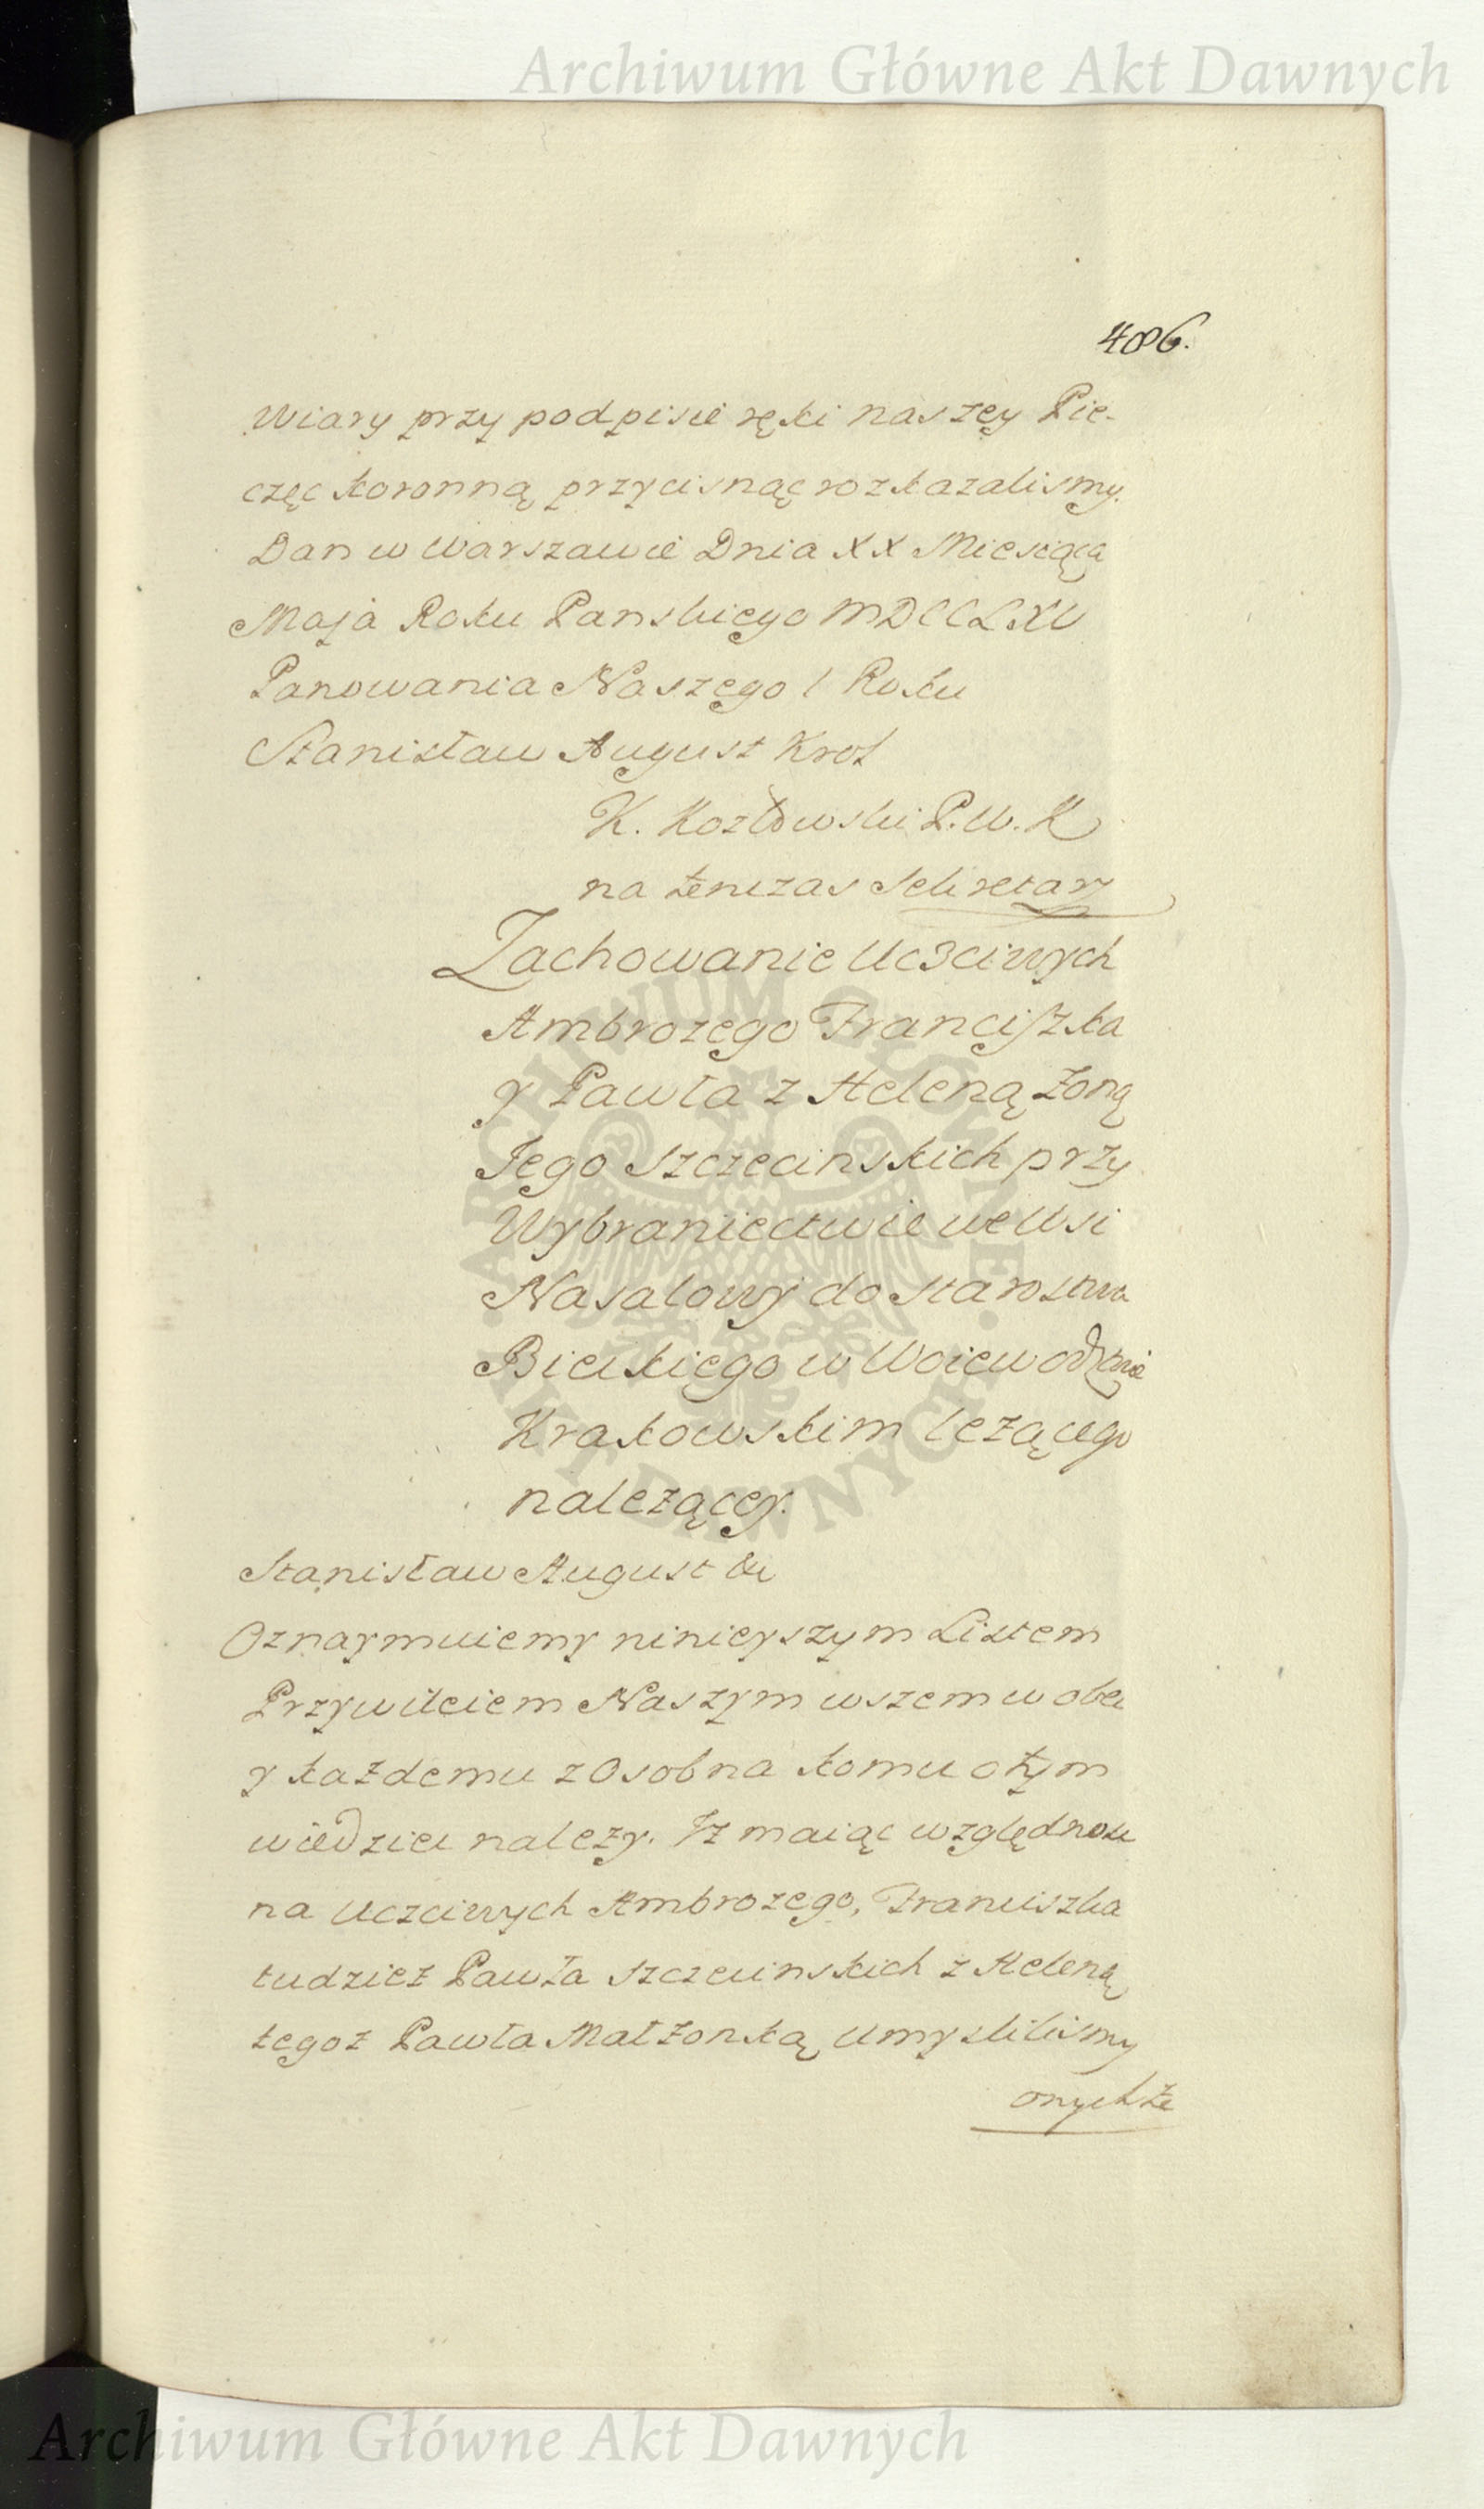 Archiwum Główne Akt Dawnych
486.
Wiary przy podpisie ręki naszey Pie-
częć koronną przycisnąć rozkazalismy.
Dan w Warszawie Dnia XX Miesiąca
Maja Roku Panskiego MDCCLXV
Panowania Naszego I Roku
Stanisław August Krol
K. Kozłowski P. W. K
na tenczas Sekretarz
Zachowanie Uczciwych
Ambrozego Franciszka
y Pawła z Heleną Żoną
Jego Szczecinskich przy
Wybraniectwie we Wsi
Nasalowy do Starostwa
Bieckiego w Woiewodztwie
Krakowskim leżącego
należącey.
Stanisław August &c
Oznaymuiemy ninieyszym Listem
Przywileiem Naszym wszem w obec
y każdemu z Osobna komu o tym
wiedziec należy. Iz maiąc wzgląd nasz
na Uczciwych Ambrozego, Franciszka
tudzież Pawła Szczecinskich z Heleną
tegoż Pawła Małżonką umyslilismy
onychże
ARCHIWUM GŁÓWNE AKT DAWNYCH
Archiwum Główne Akt Dawnych